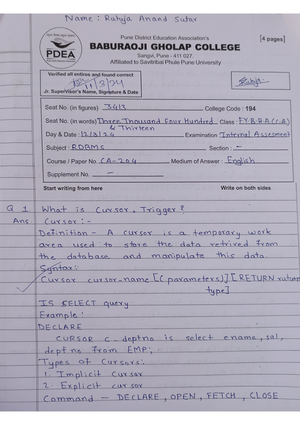 Name: Rutuja Anand Sutar
[4 pages]
Pune District Education Association's
BABURAOJI GHOLAP COLLEGE
Sangvi, Pune - 411 027.
Affiliated to Savitribai Phule Pune University
PDEA
Verified all entires and found correct
12/3/24
Jr. Supervisor's Name, Signature & Date
Rutuja
Seat No. (in figures) 3413 College Code : 194
Seat No. (in words) Three Thousand Four Hundred Class : F.Y.B.B.A(C.A)
& Thirteen
Day & Date : 12/3/24 Examination Internal Assesment
Subject : RDBMS Section : -
Course / Paper No. CA-204 Medium of Answer : English
Supplement No. -
Start writing from here Write on both sides
Q 1 What is Cursor, Trigger?
Ans Cursor :-
Definition - A cursor is a temporary work
area used to store the data retrived from
the database and manipulate this data
Syntax:
Cursor cursor-name [(parameters)] [RETURN
type]
IS SELECT query
Example:
DECLARE
CURSOR c-deptno is select ename, sal,
deptno from EMP;
Types of Cursors:
1. Implicit Cursor
2. Explicit cursor
Command - DECLARE, OPEN, FETCH, CLOSE